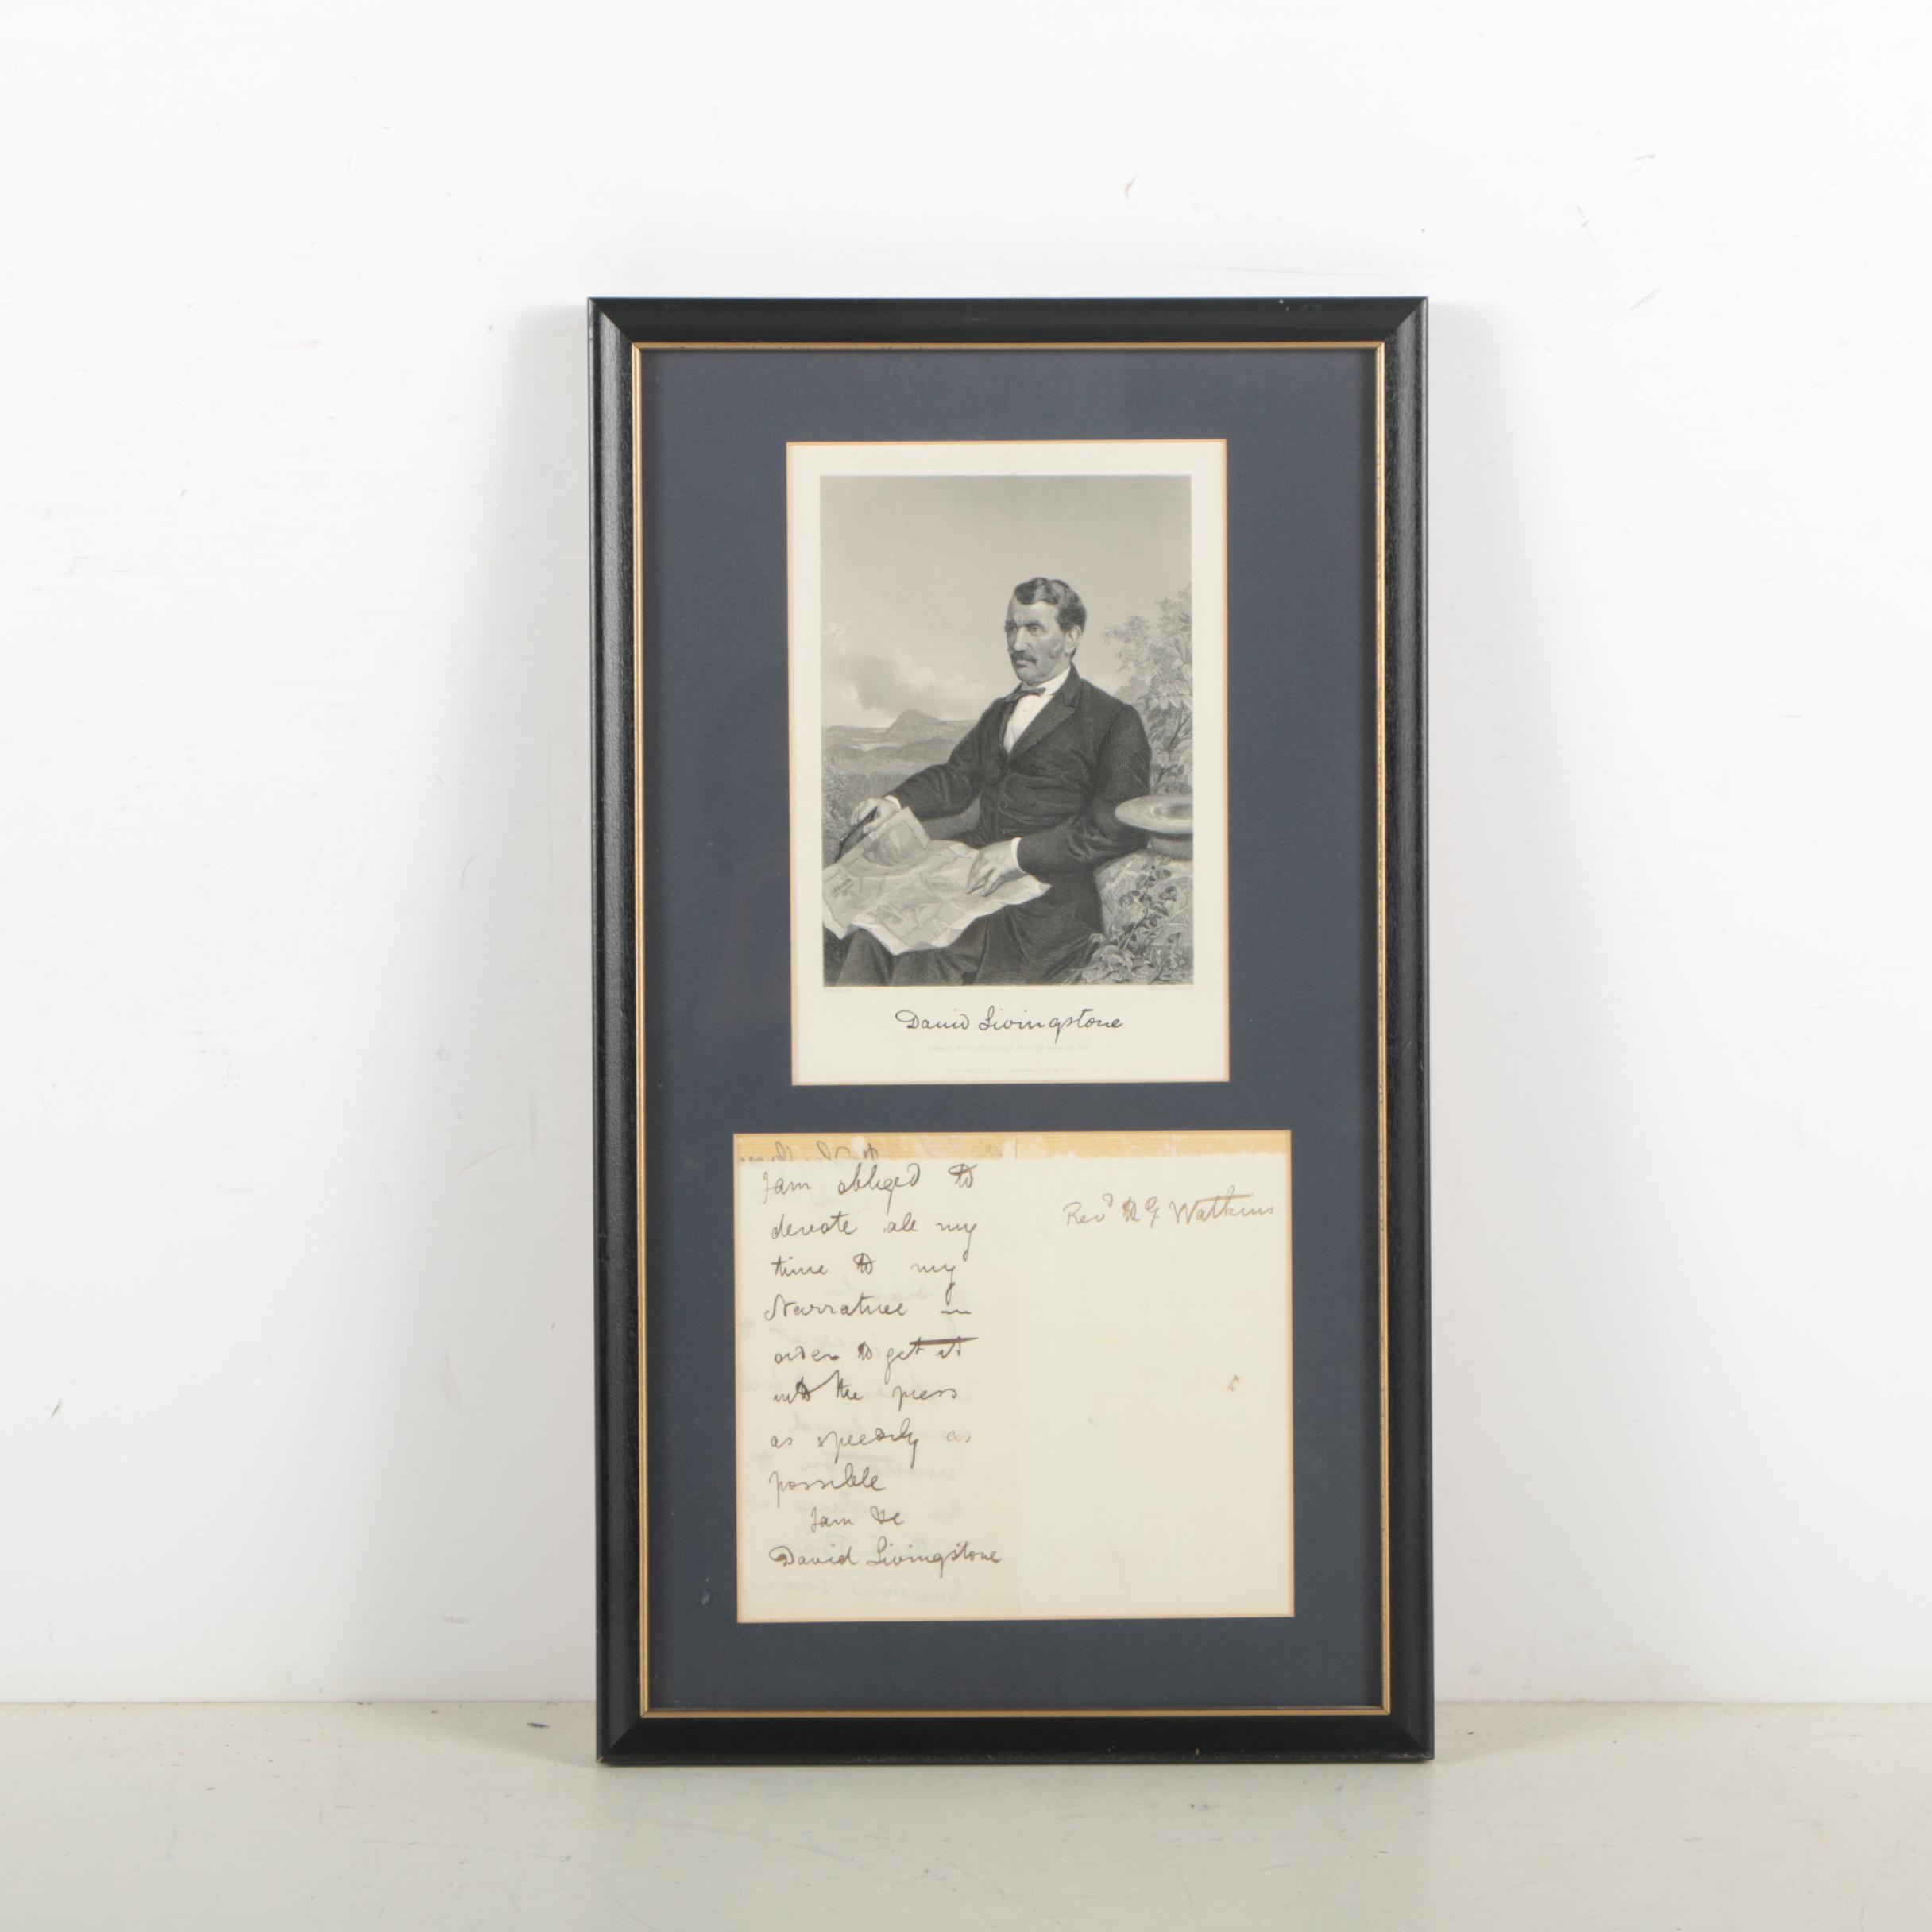 David Livingstone
I am obliged to
devote all my
time to my
Narrative in
order to get it
into the press
as speedily as
possible
I am &c
David Livingstone
Revd Watkins